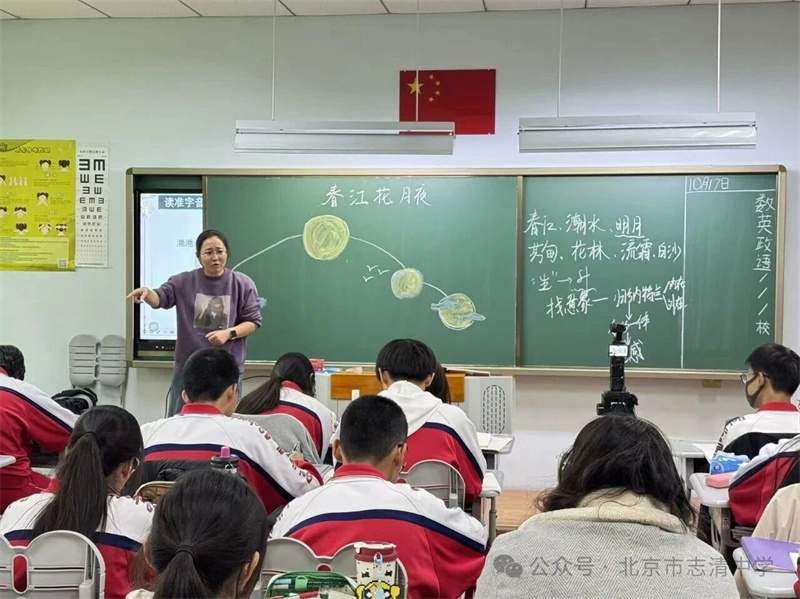 读准字音
滟滟
春江花月夜
春江、潮水、明月
芳甸、花林、流霜、白沙
"生"→升
找意象—归纳特点
一体
感
10月17日
数英政语///校
公众号 · 北京市志清中学